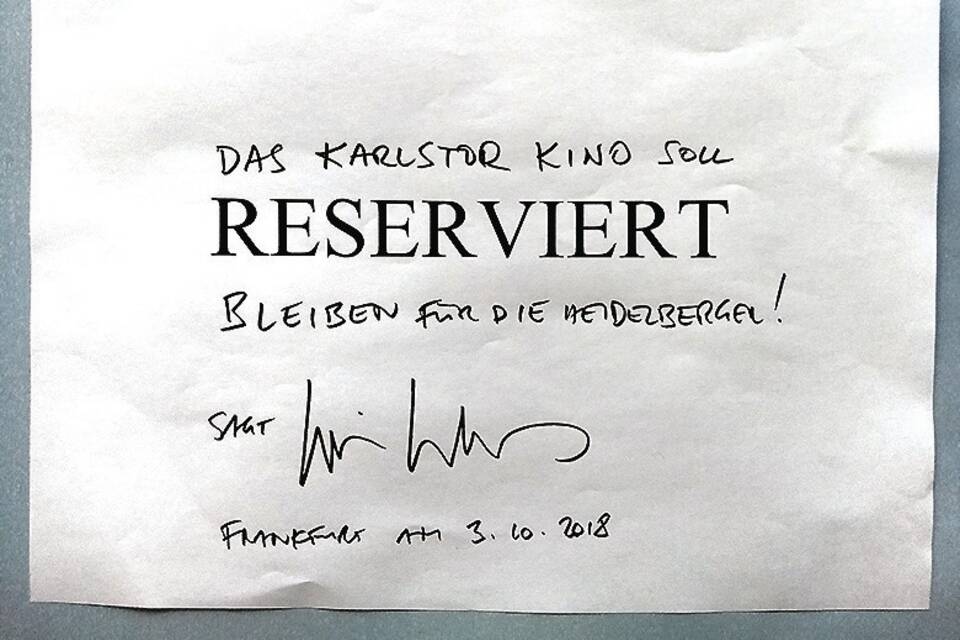 DAS KARLSTOR KINO SOLL
RESERVIERT
BLEIBEN FÜR DIE HEIDELBERGER!
SAGT
FRANKFURT AM 3.10.2018